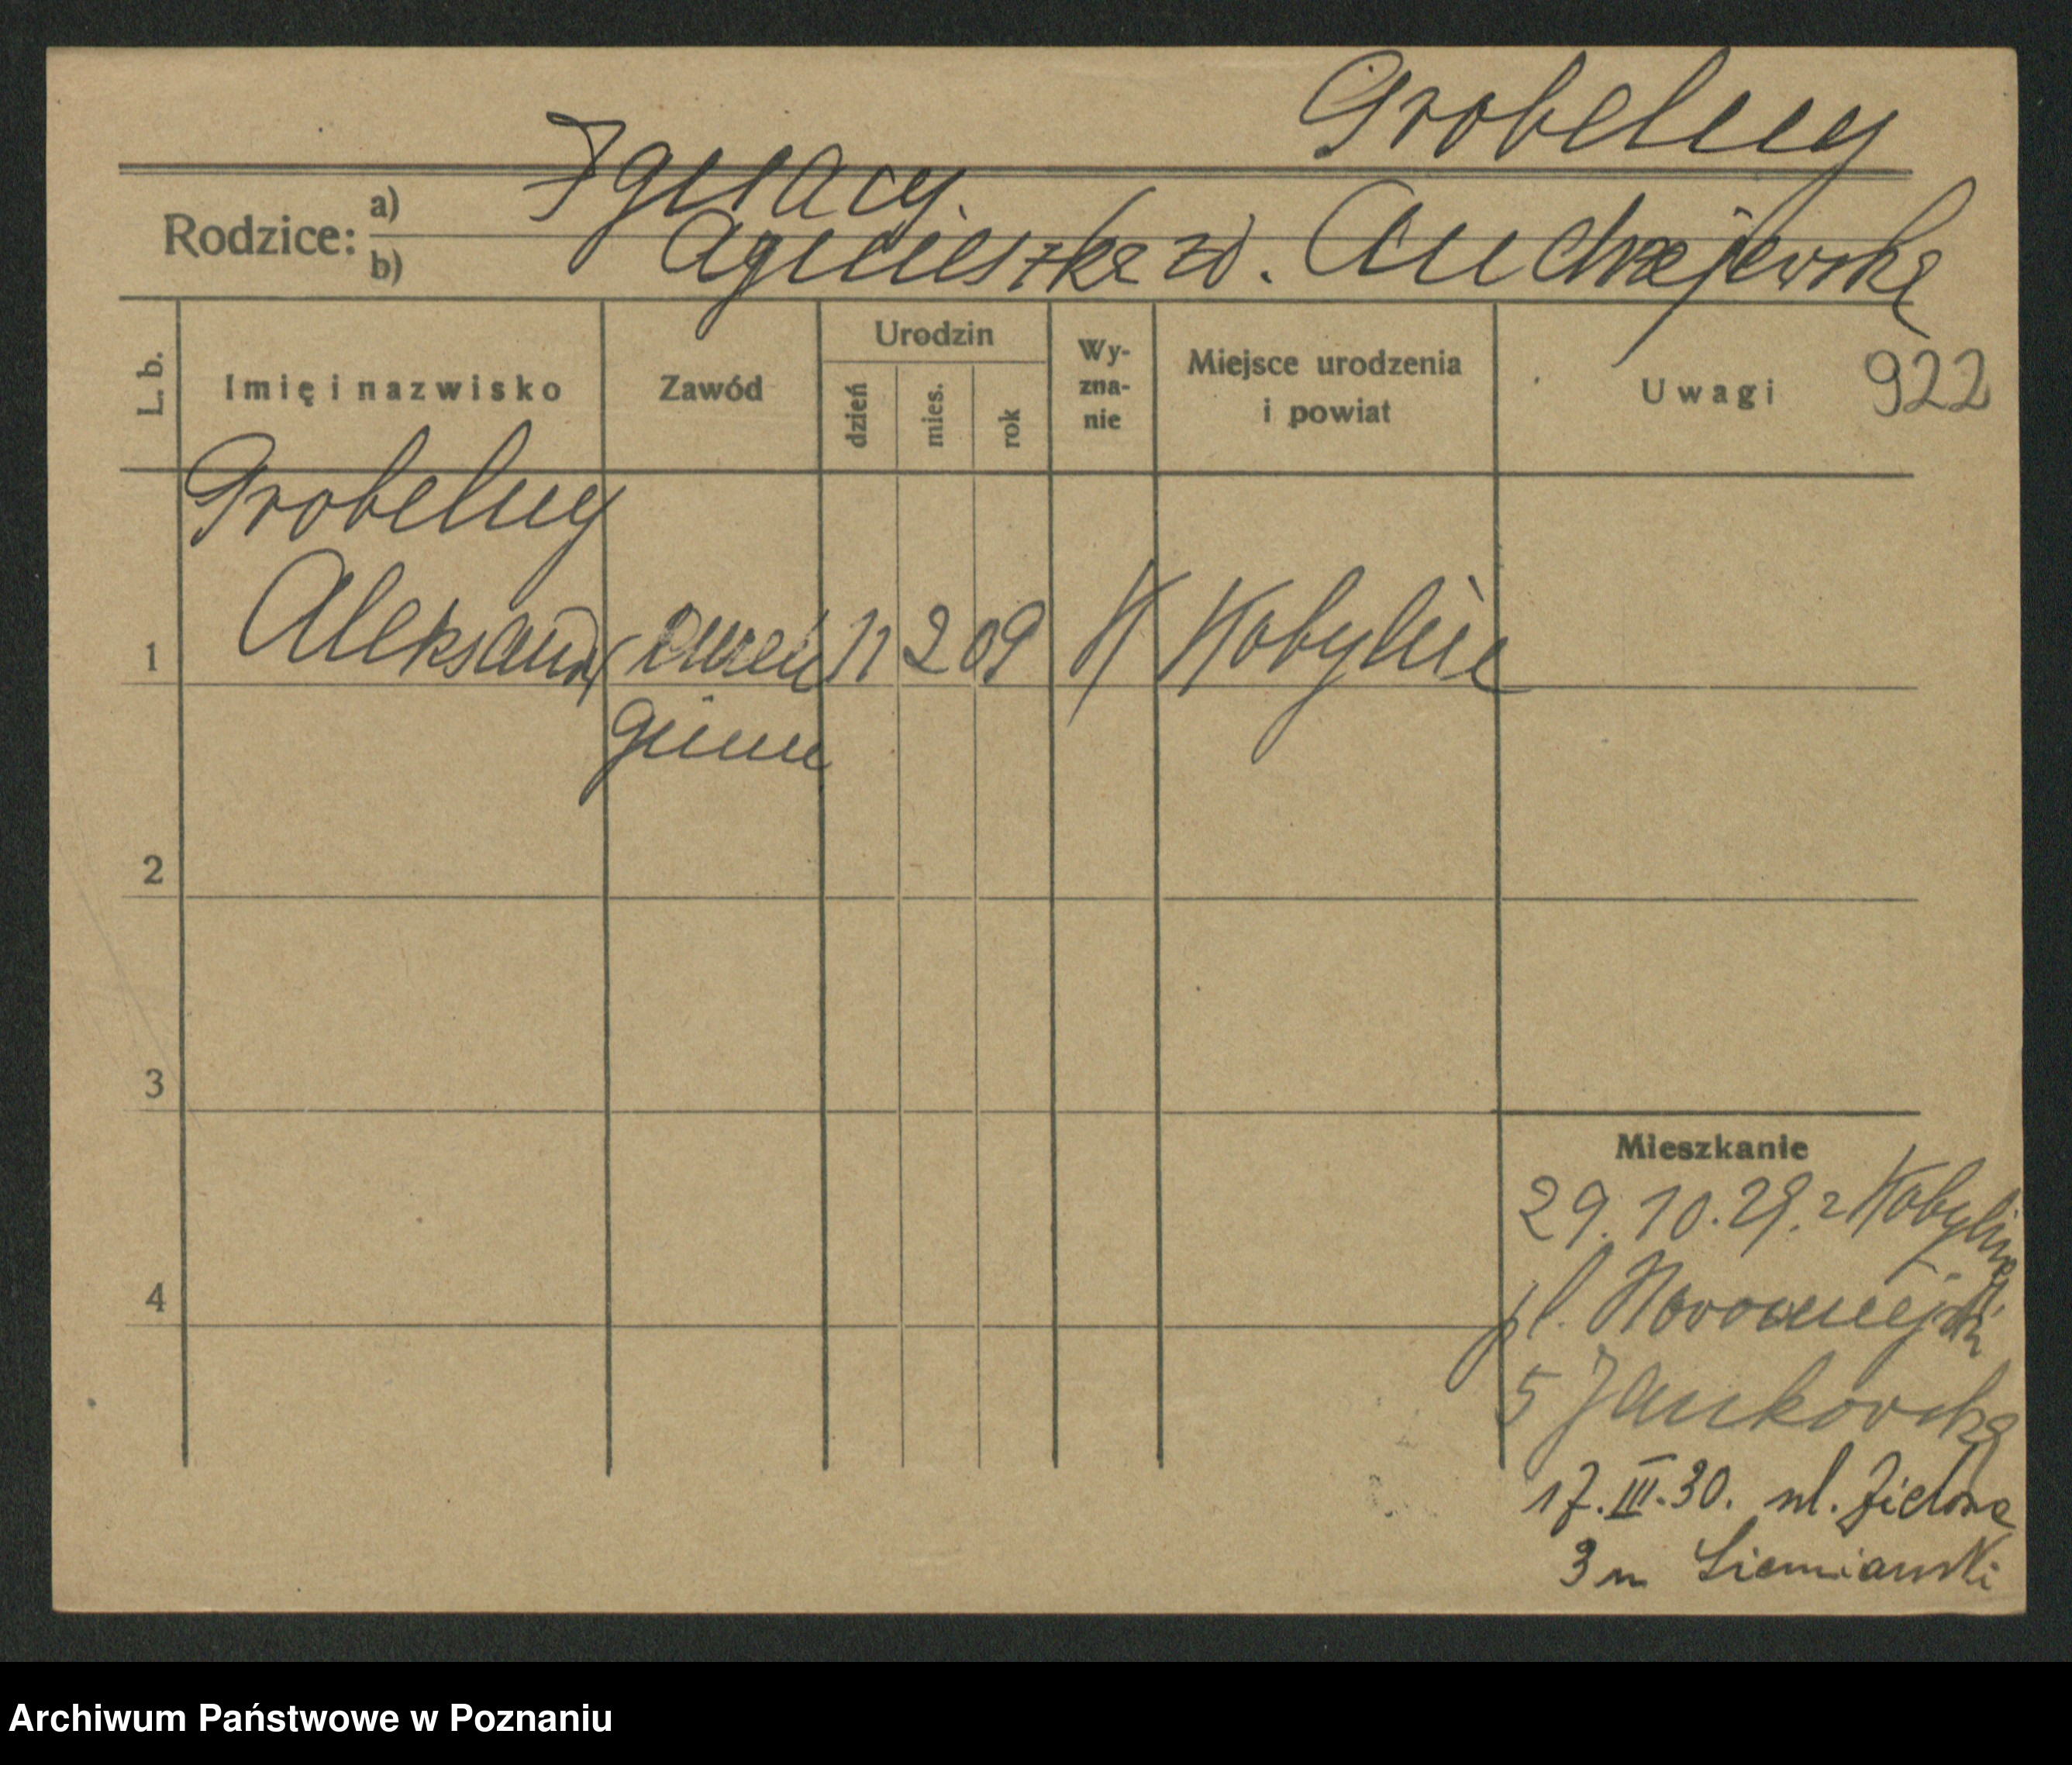 Grobelny
Rodzice: a) Ignacy
b) Agnieszka zd. Andrzejewska
L. b. Imię i nazwisko Zawód Urodzin dzień mies. rok Wy-zna-nie Miejsce urodzenia i powiat Uwagi 922
Grobelny
1 Aleksandr uczeń 11 2 09 K Kobylin
gimn
2
3
Mieszkanie
29. 10. 29. z Kobylina
4
pl. Nowomiejski
5 Jankowska
17. III. 30. ul. Zielona
3 m Siemianski
Archiwum Państwowe w Poznaniu